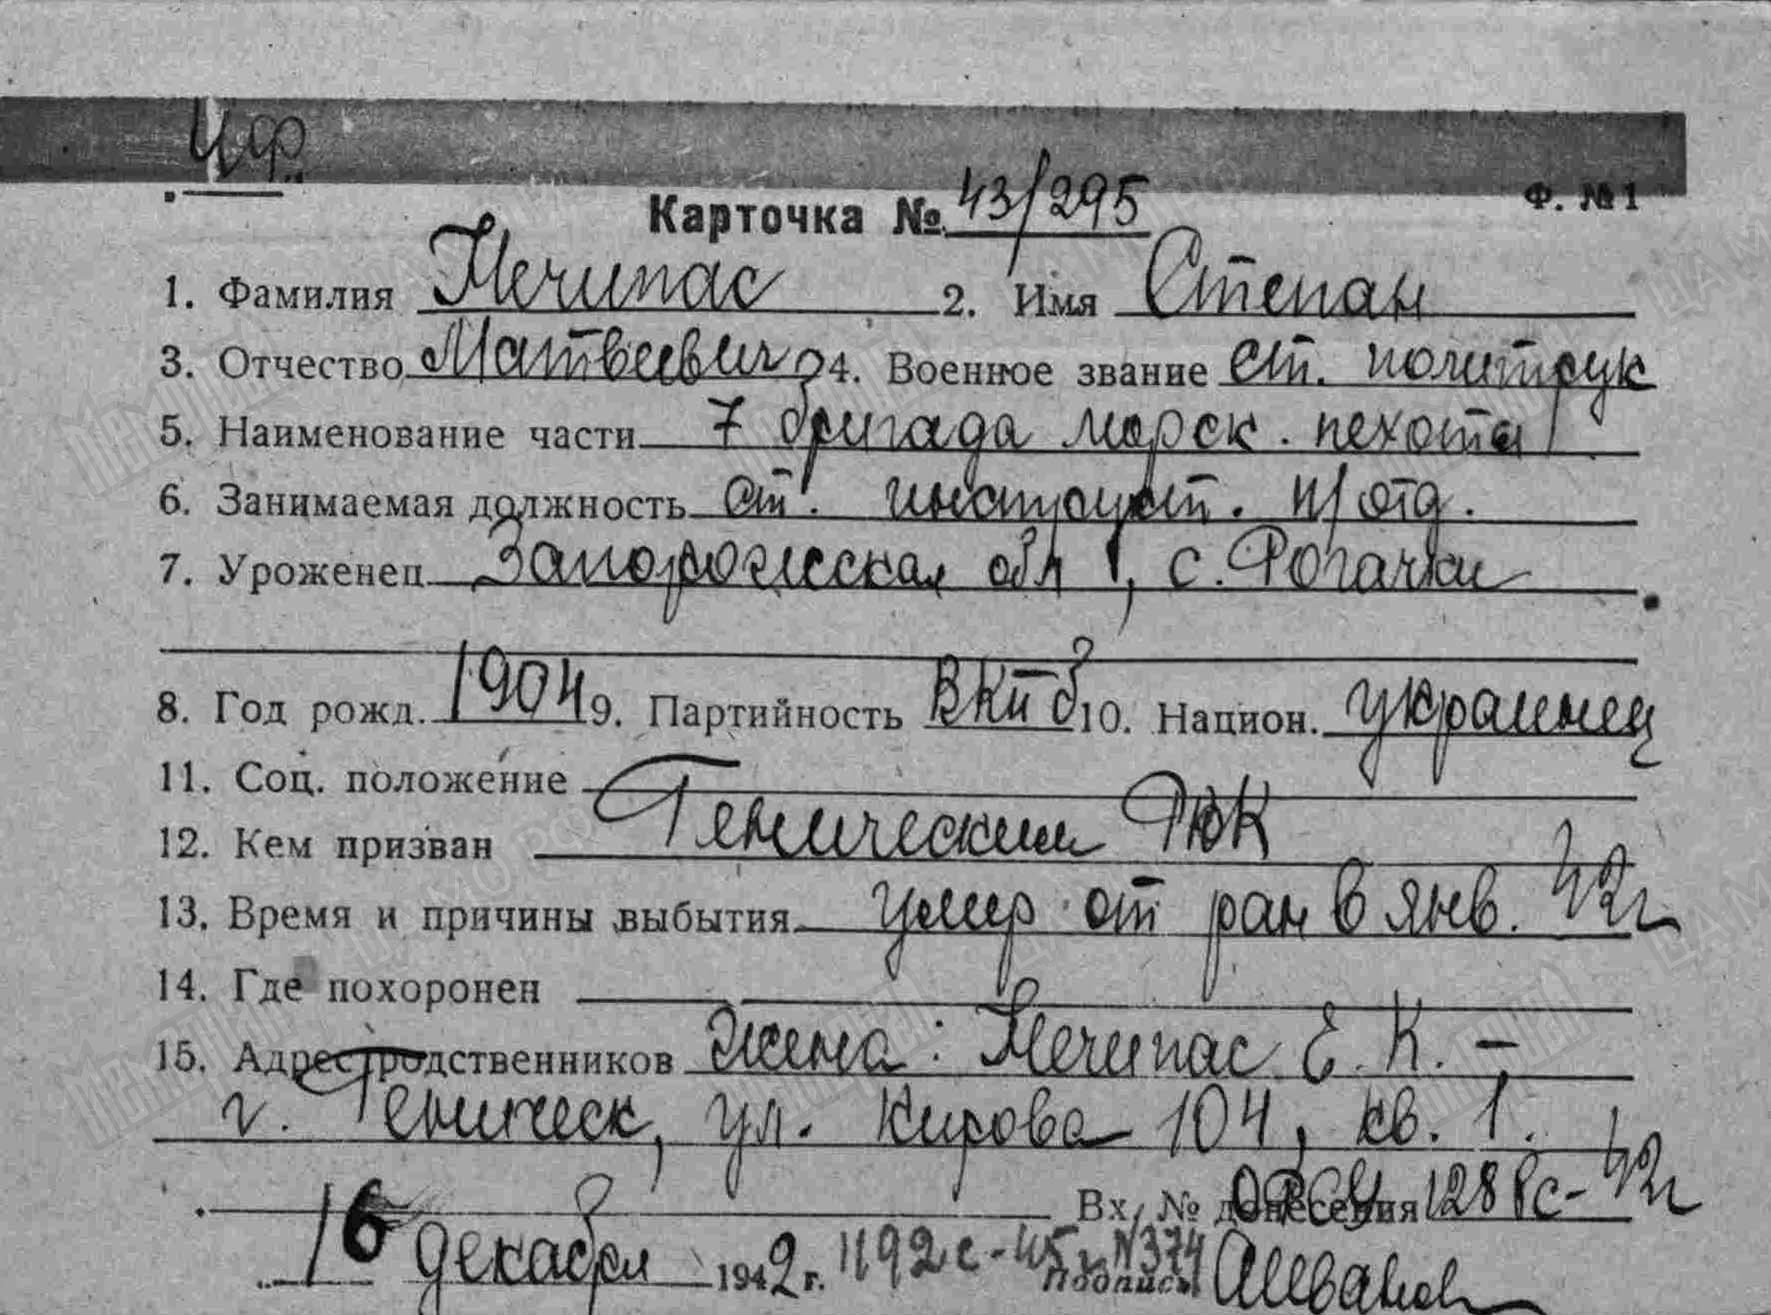 Цф.
Ф. №1
Карточка № 43/295
1. Фамилия Нечипас 2. Имя Степан
3. Отчество Матвеевич 4. Военное звание ст. политрук
5. Наименование части 7 бригада морск. пехоты
6. Занимаемая должность ст. инструкт. п/отд.
7. Уроженец Запорожская обл, с. Рогачки
8. Год рожд. 1904 9. Партийность ВКПб 10. Национ. украинец
11. Соц. положение
12. Кем призван Генический РВК
13. Время и причины выбытия умер от ран в янв. 42г
14. Где похоронен
15. Адрес родственников жена: Нечипас Е. К. –
г. Геническ, ул. Кирова 104, кв. 1.
Вх. № донесения 1288с-42г
16 декабря 1942 г. 1192с-45г. №374 Подпись